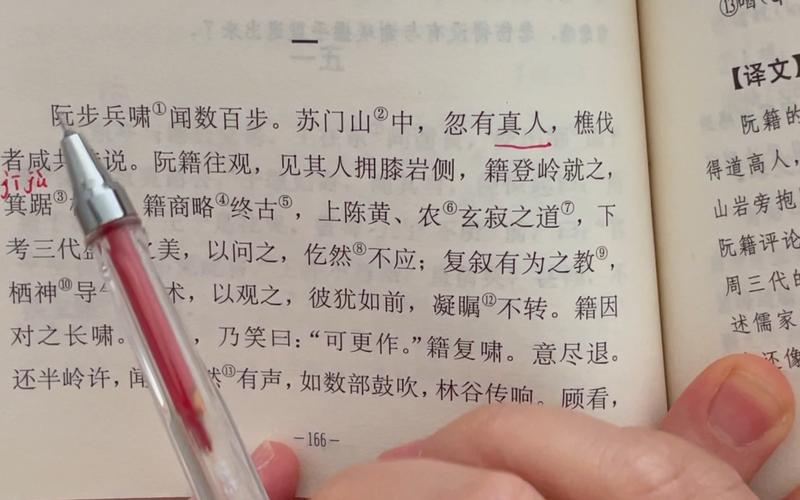 一
阮步兵啸①闻数百步。苏门山②中，忽有真人，樵伐
者咸共说。阮籍往观，见其人拥膝岩侧，籍登岭就之，
jī jù
箕踞③籍商略④终古⑤，上陈黄、农⑥玄寂之道⑦，下
考三代之美，以问之，仡然⑧不应；复叙有为之教⑨，
栖神⑩导术，以观之，彼犹如前，凝瞩⑫不转。籍因
对之长啸。，乃笑曰：“可更作。”籍复啸。意尽退。
还半岭许，闻然⑬有声，如数部鼓吹，林谷传响。顾看，
—166—
⑬
【译文】
阮籍的
得道高人，
山岩旁抱
阮籍评论
周三代的
述儒家
还像